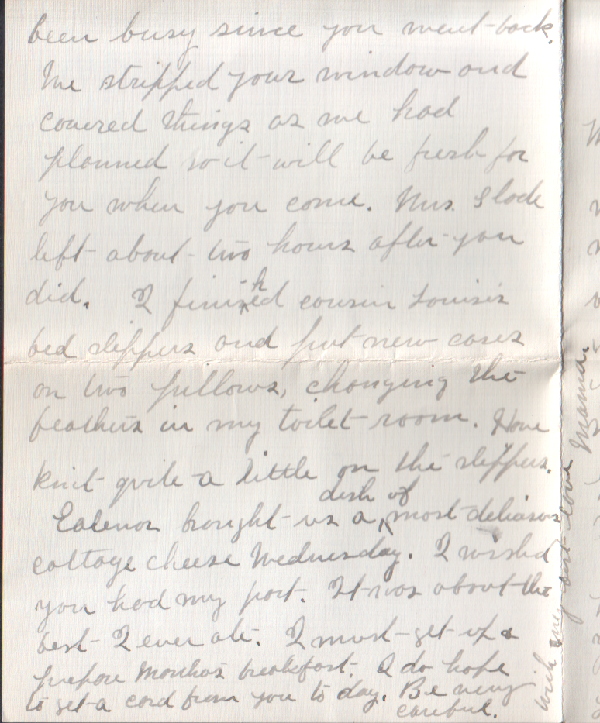 been busy since you went back.
We stripped your window and
covered things as we had
planned so it will be fresh for
you when you come. Mrs. Slack
left about two hours after you
did. I finished cousin Louisis
bed slippers and put new cases
on two pillows, changing the
feathers in my toilet room. Have
knit quite a little on the slippers.
Ealenor brought us a dish of most delicious
cottage cheese Wednesday. I wished
you had my part. It was about the
best I ever ate. I must get up &
prepare breakefast. I do hope
to get a card from you to day. Be very
careful.
with love Maman.